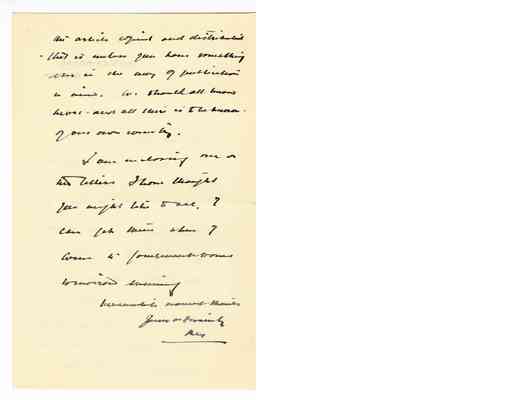 article copied and distributed
that is unless you have something
else in the way of publication
in mind. We should all know
more - and all there is to be known -
of our own country.
I am enclosing one or
two letters I have thought
you might like to see. I
can get them when I
come to
tomorrow evening
With warmest thanks
Yours